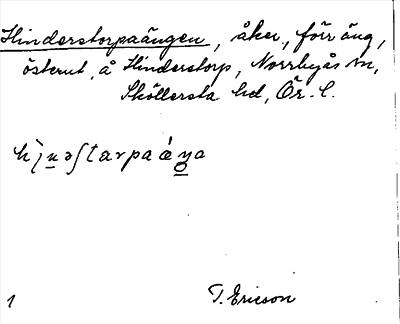 Hinderstorpaängen, åker, förr äng,
österut, å Hinderstorp, Norrbyås sn,
Sköllersta hd, Ör. l.
1
T. Ericson